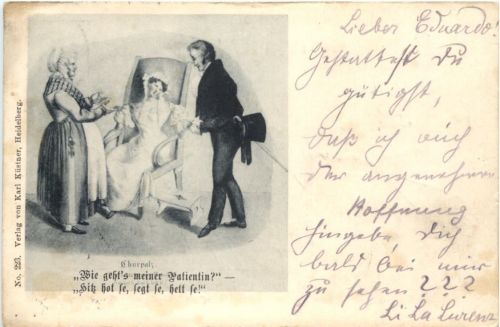 No. 223. Verlag von Karl Küstner, Heidelberg.
Churpalz.
„Wie geht's meiner Patientin?" —
„Hitz hot se, segt se, hett se!"
Lieber Eduardo!
Gestattest Du
gütigst,
daß ich mich
der angenehmen
Hoffnung
hingebe Dich
bald bei mir
zu sehen ? ? ?